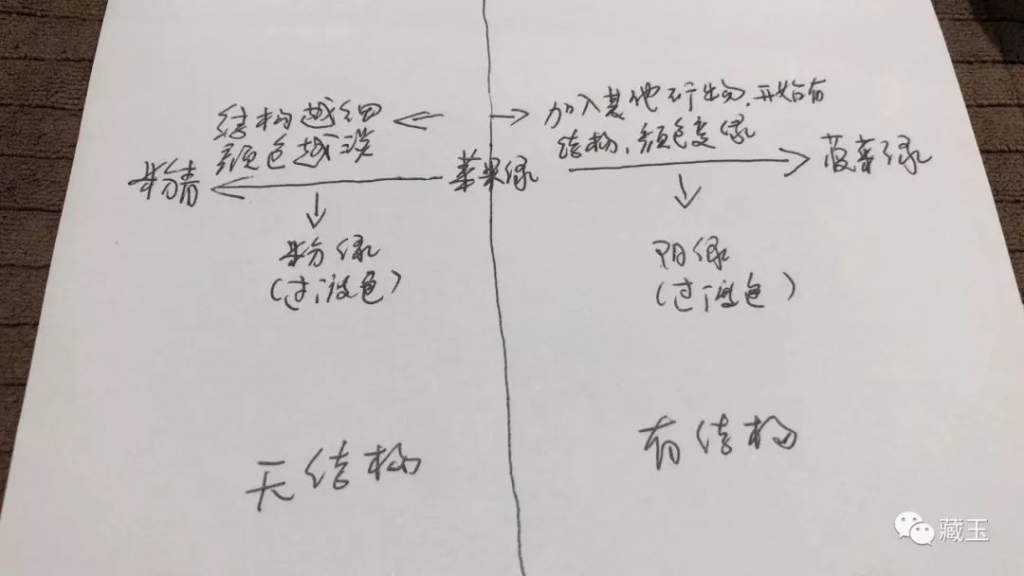 结构越细
颜色越淡
加入其他矿物,开始有
结构,颜色变绿
粉青
苹果绿
菠菜绿
粉绿
(过渡色)
阳绿
(过渡色)
无结构
有结构
藏玉